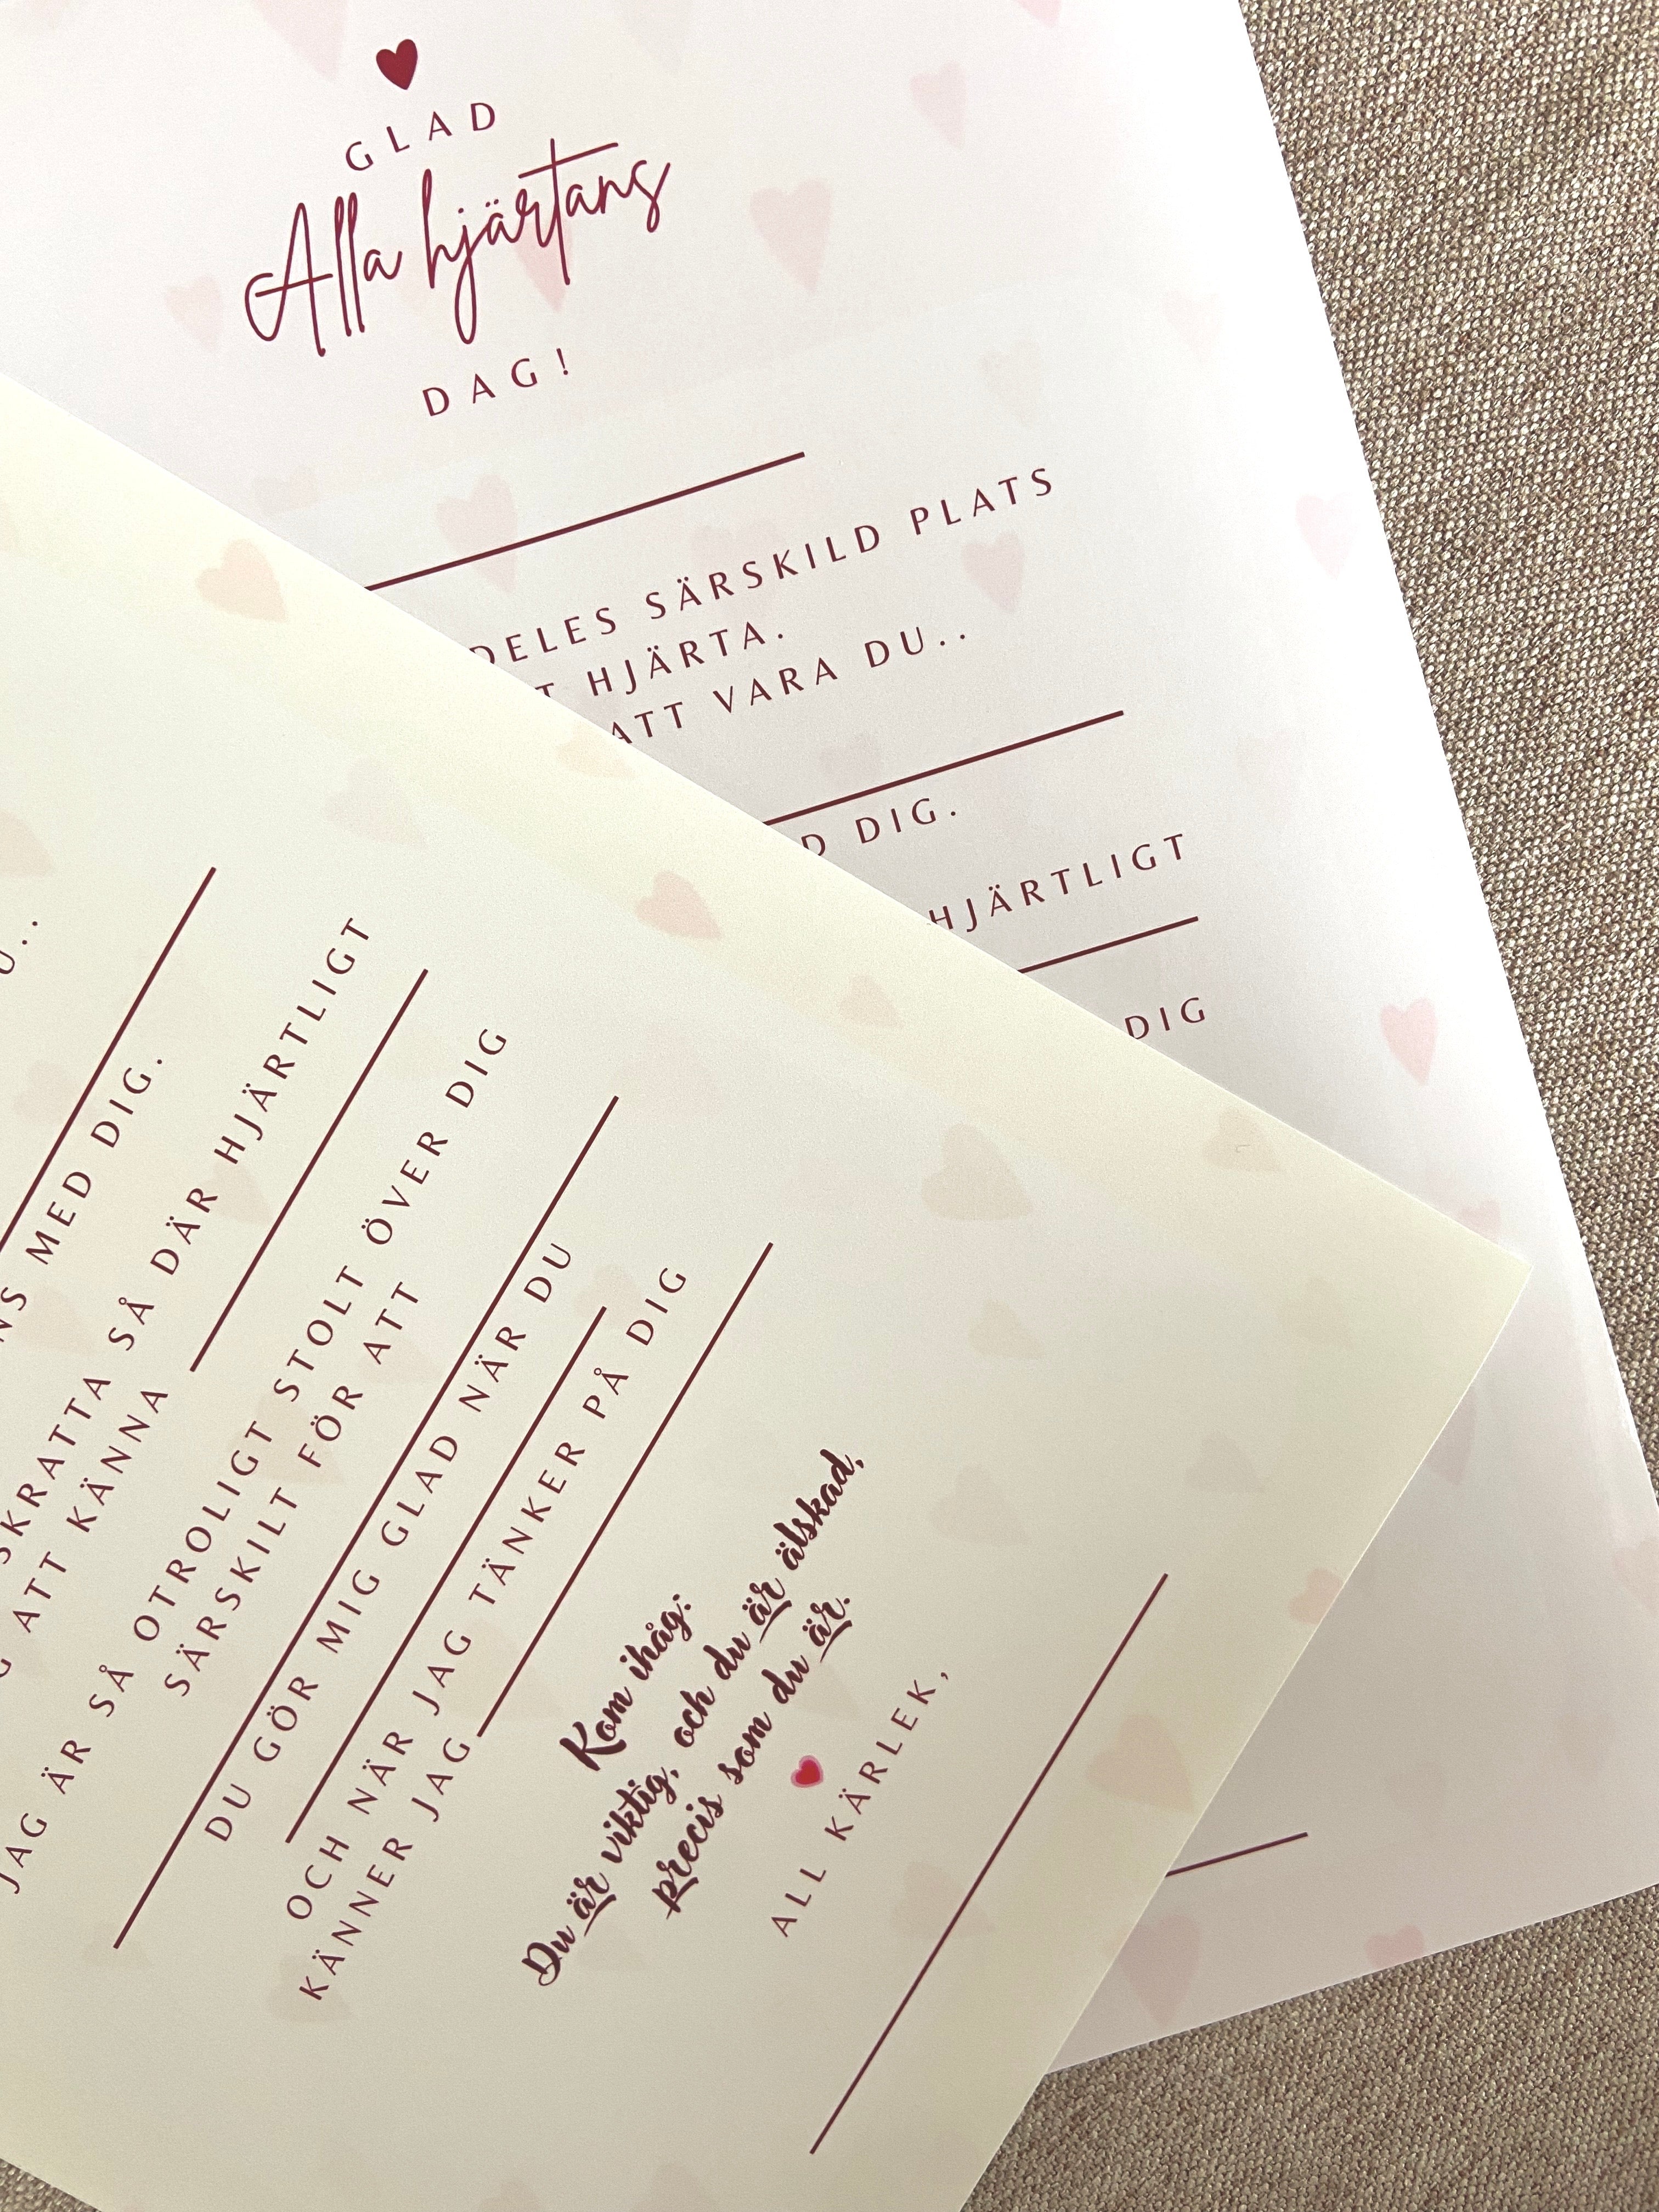 GLAD
Alla hjärtans
DAG!
DELES SÄRSKILD PLATS
T HJÄRTA.
ATT VARA DU..
D DIG.
HJÄRTLIGT
DIG
U..
NS MED DIG.
SKRATTA SÅ DÄR HJÄRTLIGT
G ATT KÄNNA
JAG ÄR SÅ OTROLIGT STOLT ÖVER DIG
SÄRSKILT FÖR ATT
DU GÖR MIG GLAD NÄR DU
OCH NÄR JAG TÄNKER PÅ DIG
KÄNNER JAG
Kom ihåg:
Du är viktig, och du är älskad,
precis som du är.
ALL KÄRLEK,